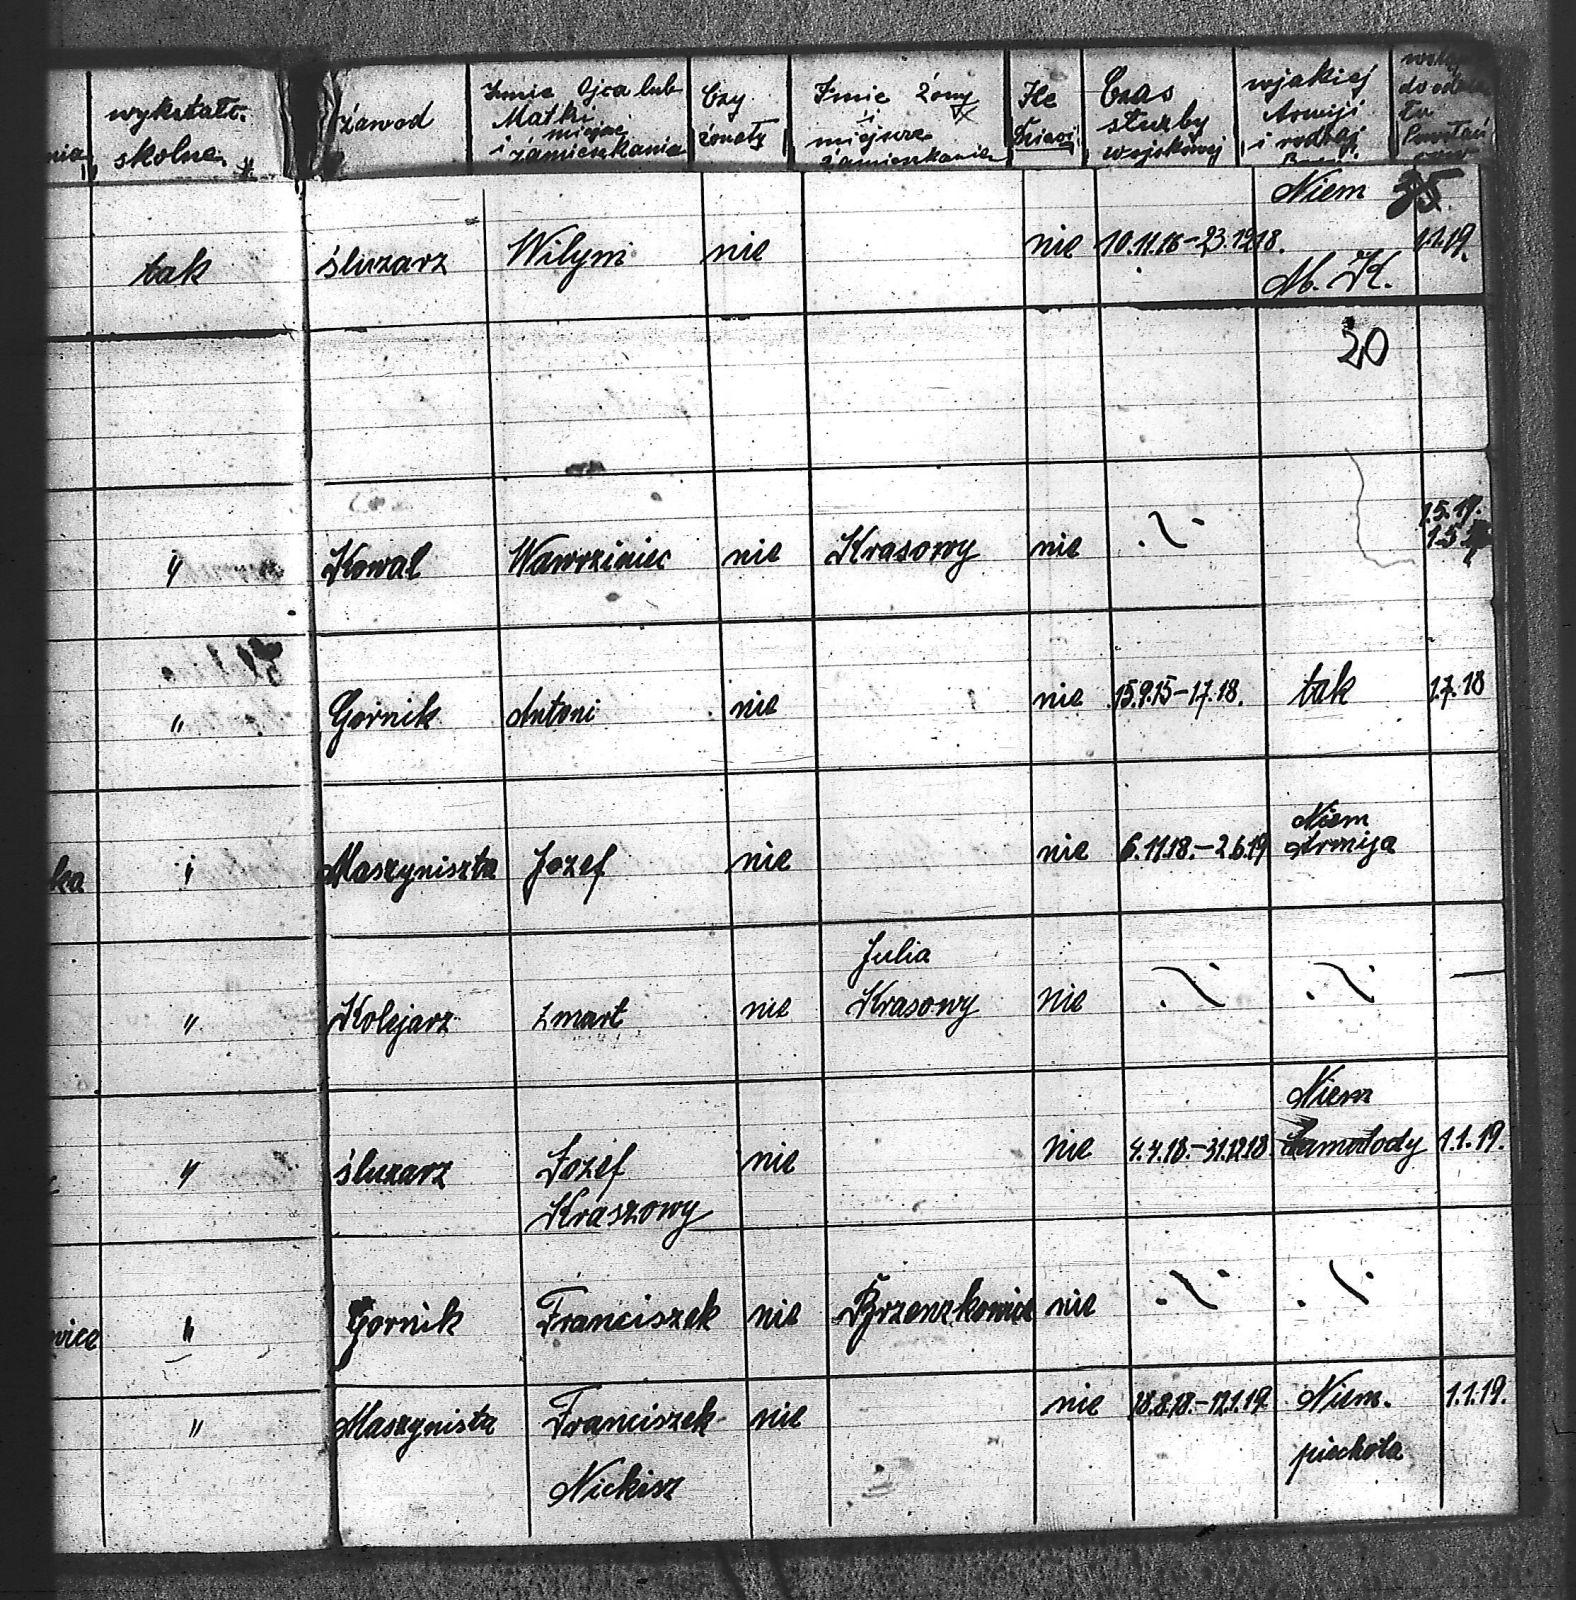 wykształc. skolne
zawod
Imie Ojca lub Matki i miejsc zamieszkania
Czy żonaty
Imie Żony i miejsce zamieszkania
Ile Dzieci
Czas służby wojskowej
wjakiej Armiji i rodzaj
35
tak śluzarz Wilym nie nie 10.11.16-23.12.18. Niem M. K. 1.1.19.
20
" Kowal Wawrziniec nie Krasowy nie ·/· 1.5.19.
" Gornik Antoni nie nie 15.9.15-1.7.18. tak 1.7.18
ka " Maszyniszta Jozef nie nie 6.11.18.-2.6.19 Niem Armija
" Kolejarz zmart nie Julia Krasowy nie ·/· ·/· —
" śluzarz Jozef Kraszowy nie nie 4.4.18.-31.12.18 Niem Samolody 1.1.19.
wice " Gornik Franciszek nie Brzenzkowice nie ·/· ·/·
" Maszynista Franciszek Nickisz nie nie 18.8.18.-12.1.19. Niem. piechota 1.1.19.